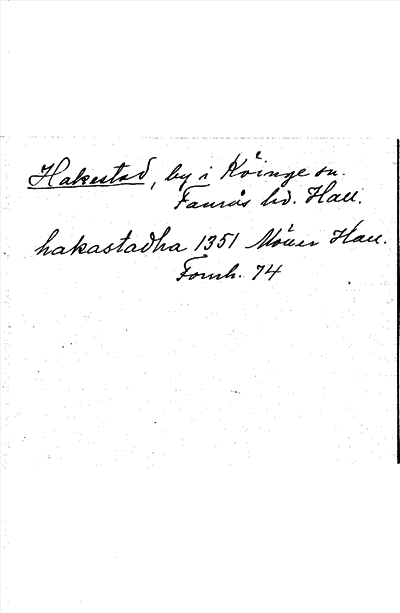 Hakestad, by i Köinge sn.
Faurås hd. Hall.
hakastadha 1351 Möller Hall.
Fornh. 74